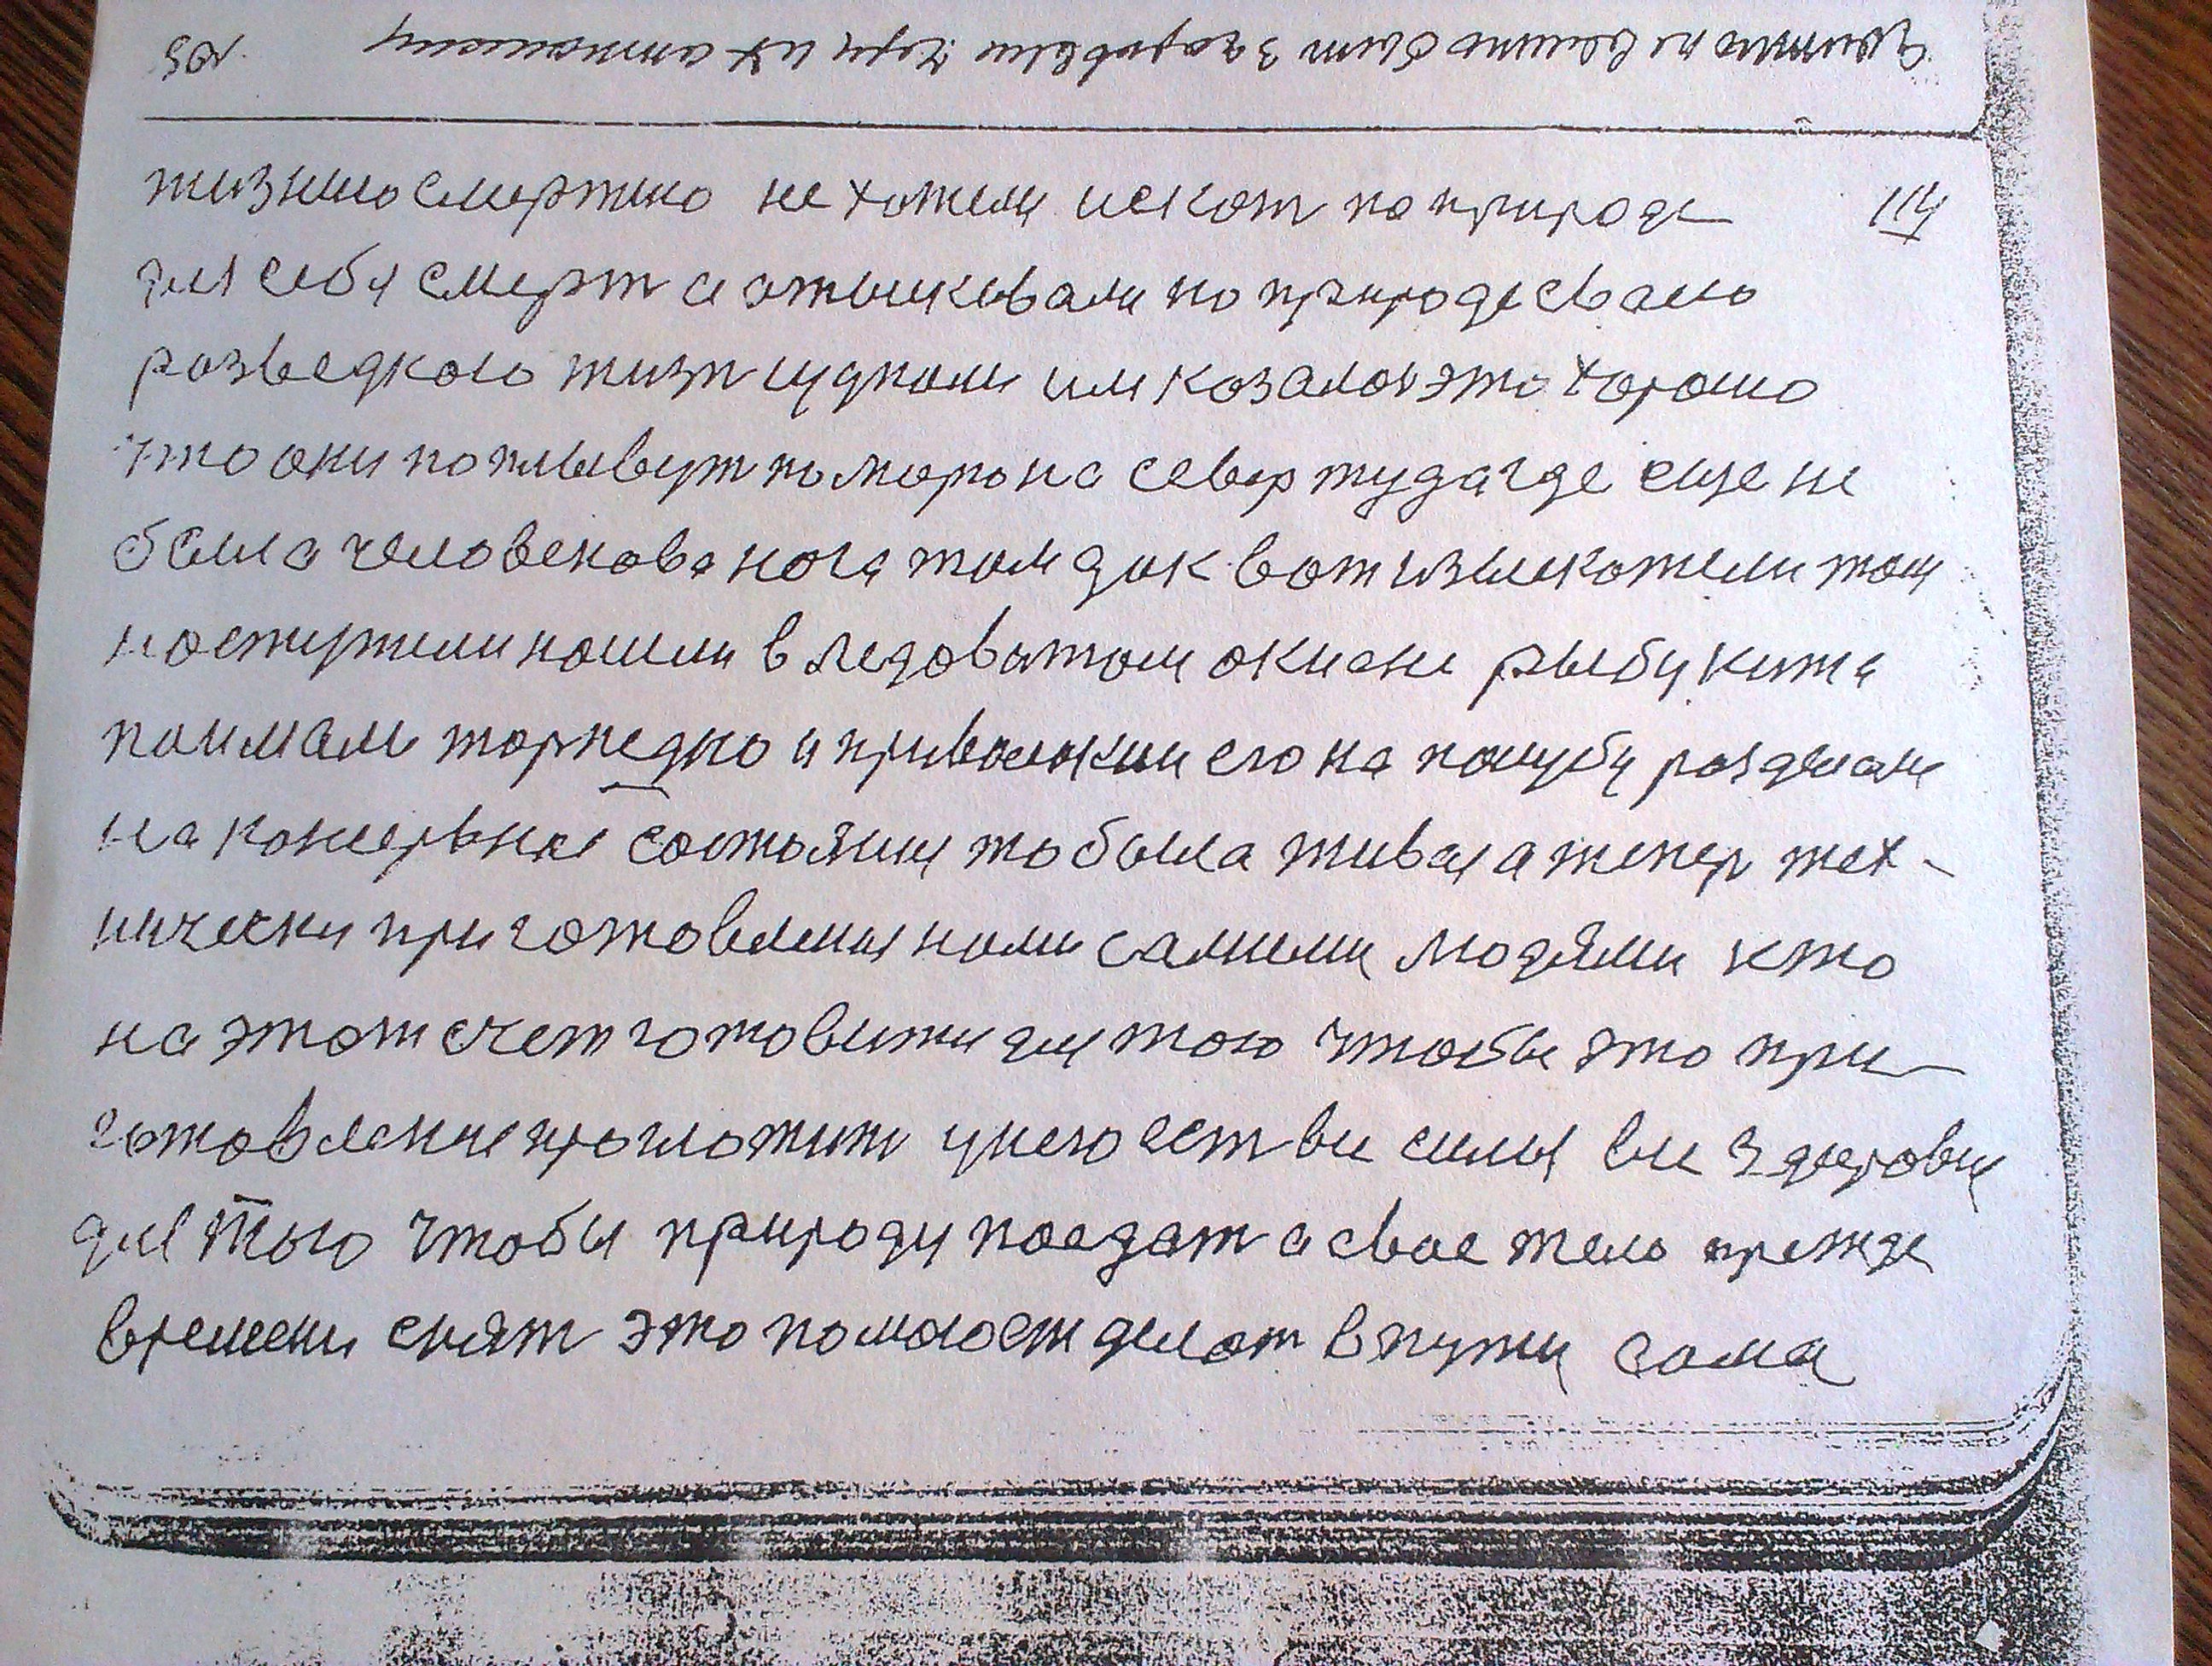 жизнию смертию не хотели искат по природе 114
для себя смерт а отыскивали по природе свою
розведкою жизн чудною им козалос это хорошо
что они поплывут по морю на север туда где еще не
была человекова нога там
постигли нашли в ледоватом окиане рыбу кита
поимали торпедыю и приволокли его на полубу розделали
на консервные состояния то была живая а тепер тех-
нически приготовленыя нами самими людями кто
на этот счет готовится для того чтобы это при
готовление проглотит у него ест ви силы ви здоровия
для того чтобы природу поедат а свое тело прежде
времени снят это помогает делат в пути сама